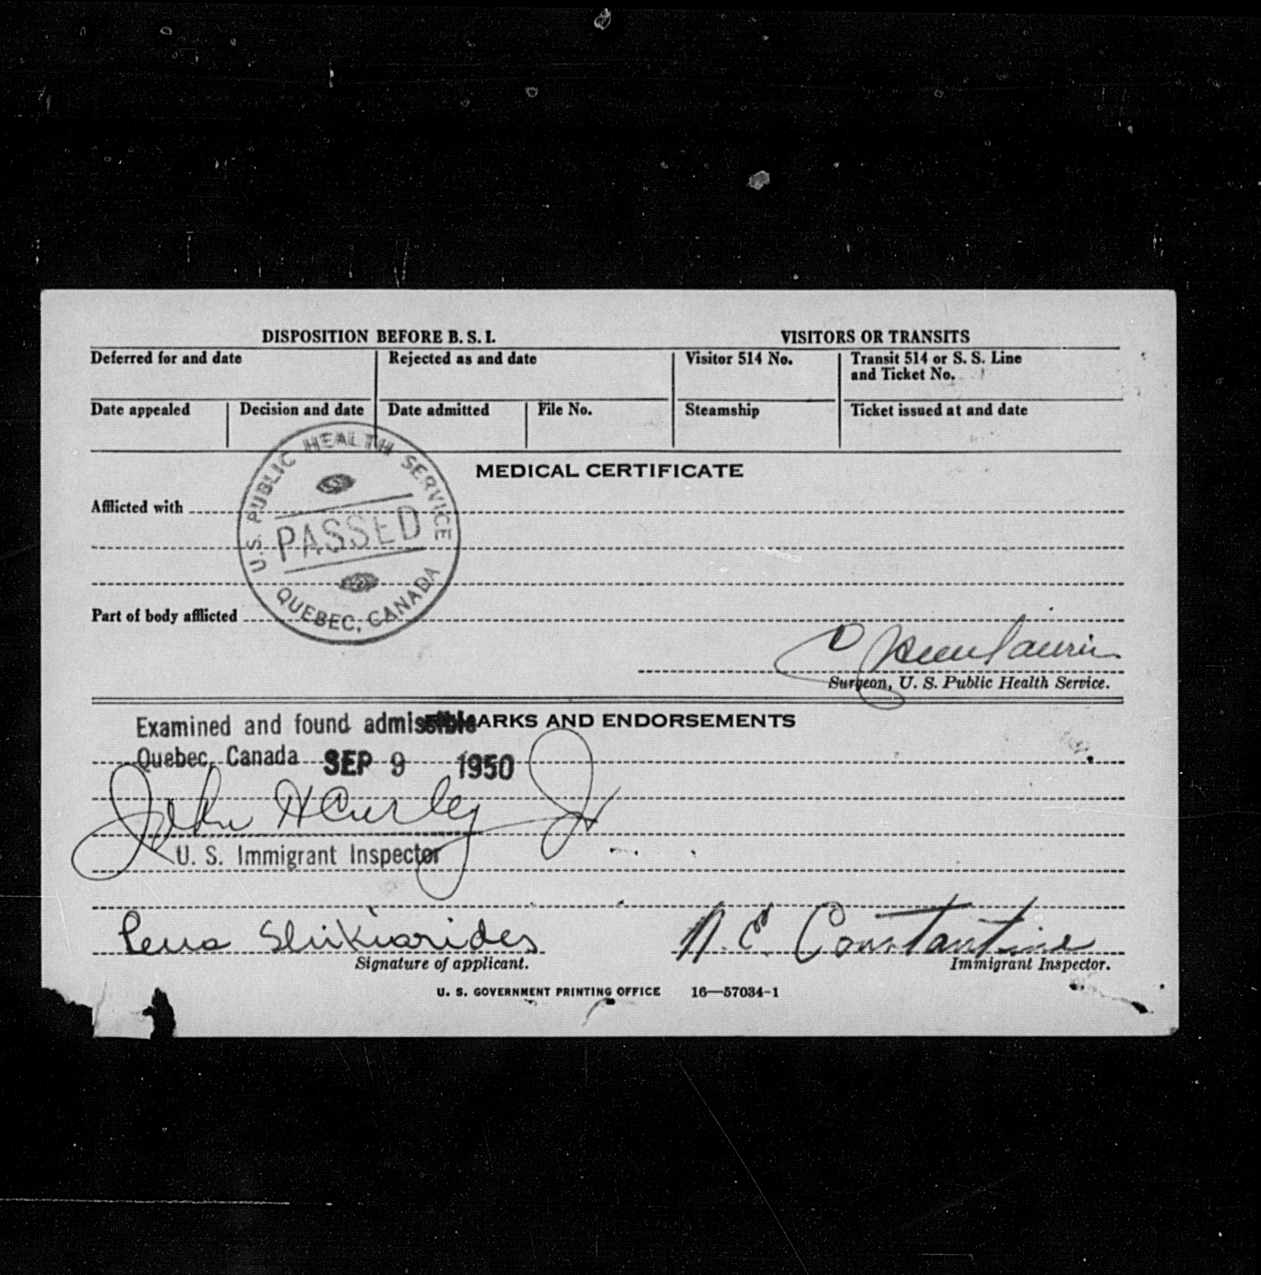 DISPOSITION BEFORE B. S. I.
VISITORS OR TRANSITS
Deferred for and date
Rejected as and date
Visitor 514 No.
Transit 514 or S. S. Line
and Ticket No.
Date appealed
Decision and date
Date admitted
File No.
Steamship
Ticket issued at and date
MEDICAL CERTIFICATE
U.S. PUBLIC HEALTH SERVICE
PASSED
QUEBEC, CANADA
Afflicted with
Part of body afflicted
Surgeon, U. S. Public Health Service.
Examined and found admissible
ARKS AND ENDORSEMENTS
Quebec, Canada SEP 9 1950
John H Curley Jr
U. S. Immigrant Inspector
N. E. Constantine
Signature of applicant.
Immigrant Inspector.
U. S. GOVERNMENT PRINTING OFFICE 16—57034-1